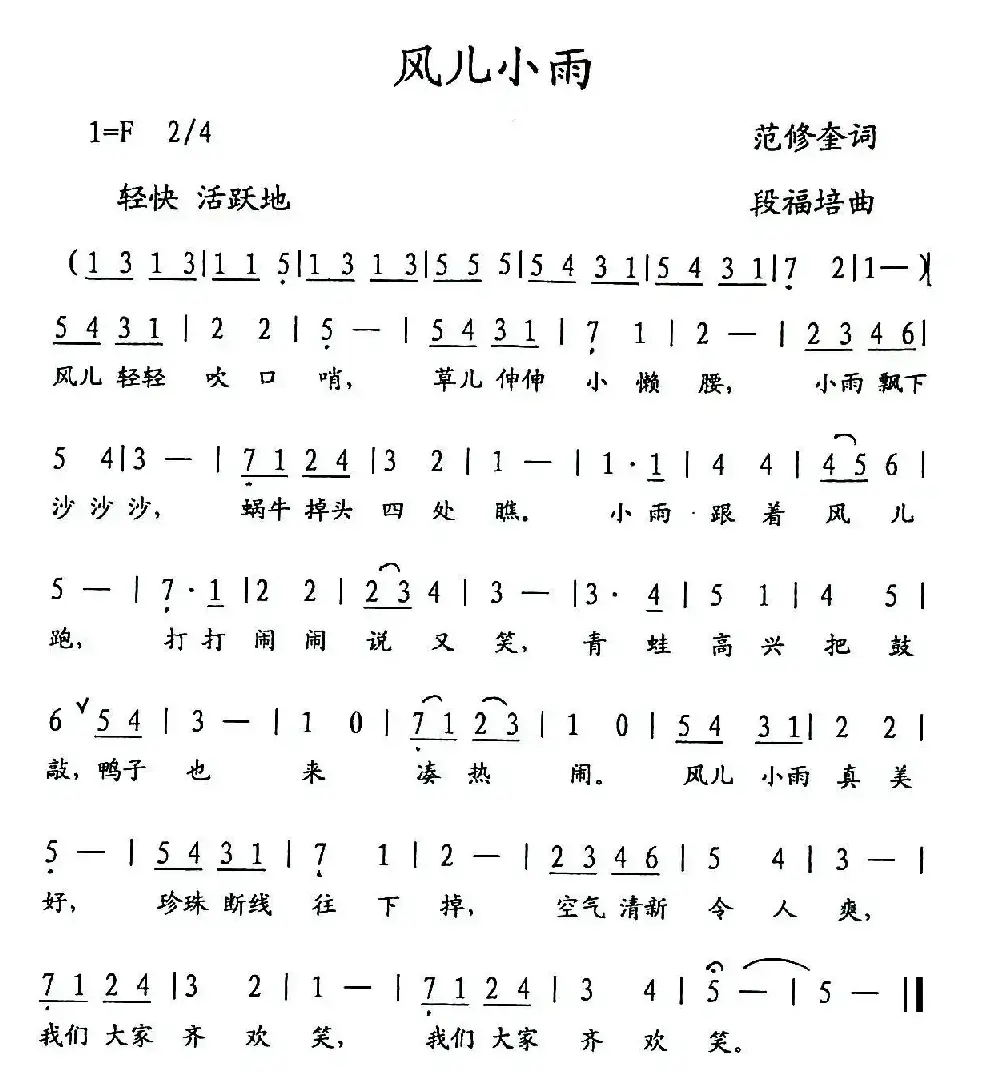 风儿小雨
1=F 2/4 范修奎词
轻快 活跃地 段福培曲
(1 3 1 3|1 1 5|1 3 1 3|5 5 5|5 4 3 1|5 4 3 1|7 2|1—)|
5 4 3 1 | 2 2 | 5 — | 5 4 3 1 | 7 1 | 2 — | 2 3 4 6 |
风儿 轻轻 吹 口 哨, 草儿 伸伸 小 懒 腰, 小雨 飘下
5 4 | 3 — | 7 1 2 4 | 3 2 | 1 — | 1 · 1 | 4 4 | 4 5 6 |
沙 沙 沙, 蜗牛 掉头 四 处 瞧。 小 雨 · 跟 着 风 儿
5 — | 7 · 1 | 2 2 | 2 3 4 | 3 — | 3 · 4 | 5 1 | 4 5 |
跑, 打 打 闹 闹 说 又 笑, 青 蛙 高 兴 把 鼓
6 ∨ 5 4 | 3 — | 1 0 | 7 1 2 3 | 1 0 | 5 4 3 1 | 2 2 |
敲, 鸭子 也 来 凑 热 闹。 风儿 小雨 真 美
5 — | 5 4 3 1 | 7 1 | 2 — | 2 3 4 6 | 5 4 | 3 — |
好, 珍珠 断线 往 下 掉, 空气 清新 令 人 爽,
7 1 2 4 | 3 2 | 1 — | 7 1 2 4 | 3 4 | 5 — | 5 — ‖
我们 大家 齐 欢 笑, 我们 大家 齐 欢 笑。